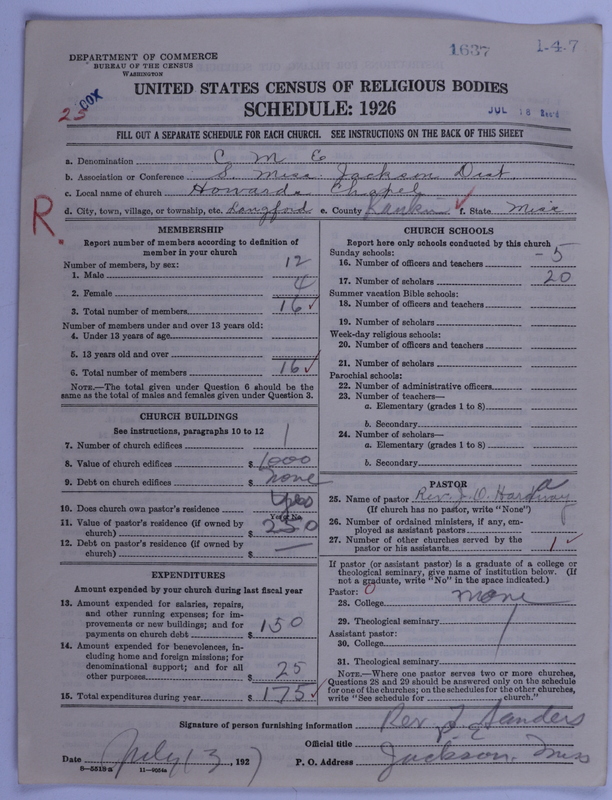 1637
1-4-7
DEPARTMENT OF COMMERCE
BUREAU OF THE CENSUS
WASHINGTON
UNITED STATES CENSUS OF RELIGIOUS BODIES
SCHEDULE: 1926
COX
25
JUL 18 Rec'd
FILL OUT A SEPARATE SCHEDULE FOR EACH CHURCH. SEE INSTRUCTIONS ON THE BACK OF THIS SHEET
a. Denomination C M E
b. Association or Conference S. Miss. Jackson Dist
c. Local name of church Howards Chapel
d. City, town, village, or township, etc. Langford e. County Rankin f. State Miss
R.
MEMBERSHIP
Report number of members according to definition of member in your church
Number of members, by sex:
1. Male 12
2. Female 4
3. Total number of members 16
Number of members under and over 13 years old:
4. Under 13 years of age
5. 13 years old and over
6. Total number of members 16
NOTE.—The total given under Question 6 should be the same as the total of males and females given under Question 3.
CHURCH BUILDINGS
See instructions, paragraphs 10 to 12
7. Number of church edifices 1
8. Value of church edifices $ 1000
9. Debt on church edifices $ none
10. Does church own pastor's residence yes
Yes or No
11. Value of pastor's residence (if owned by church) $ 250
12. Debt on pastor's residence (if owned by church) $ —
EXPENDITURES
Amount expended by your church during last fiscal year
13. Amount expended for salaries, repairs, and other running expenses; for improvements or new buildings; and for payments on church debt $ 150
14. Amount expended for benevolences, including home and foreign missions; for denominational support; and for all other purposes $ 25
15. Total expenditures during year $ 175
CHURCH SCHOOLS
Report here only schools conducted by this church
Sunday schools:
16. Number of officers and teachers - 5
17. Number of scholars 20
Summer vacation Bible schools:
18. Number of officers and teachers
19. Number of scholars
Week-day religious schools:
20. Number of officers and teachers
21. Number of scholars
Parochial schools:
22. Number of administrative officers
23. Number of teachers—
a. Elementary (grades 1 to 8)
b. Secondary
24. Number of scholars—
a. Elementary (grades 1 to 8)
b. Secondary
PASTOR
25. Name of pastor Rev. J. O. Hardway
(If church has no pastor, write "None")
26. Number of ordained ministers, if any, employed as assistant pastors
27. Number of other churches served by the pastor or his assistants 1
If pastor (or assistant pastor) is a graduate of a college or theological seminary, give name of institution below. (If not a graduate, write "No" in the space indicated.)
Pastor: 0
28. College none
29. Theological seminary
Assistant pastor:
30. College
31. Theological seminary
NOTE.—Where one pastor serves two or more churches, Questions 28 and 29 should be answered only on the schedule for one of the churches; on the schedules for the other churches, write "See schedule for church."
Signature of person furnishing information Rev J. Sanders
Official title
Date July 13, 1927 P. O. Address Jackson, Miss
8-5518-a 11-9054a